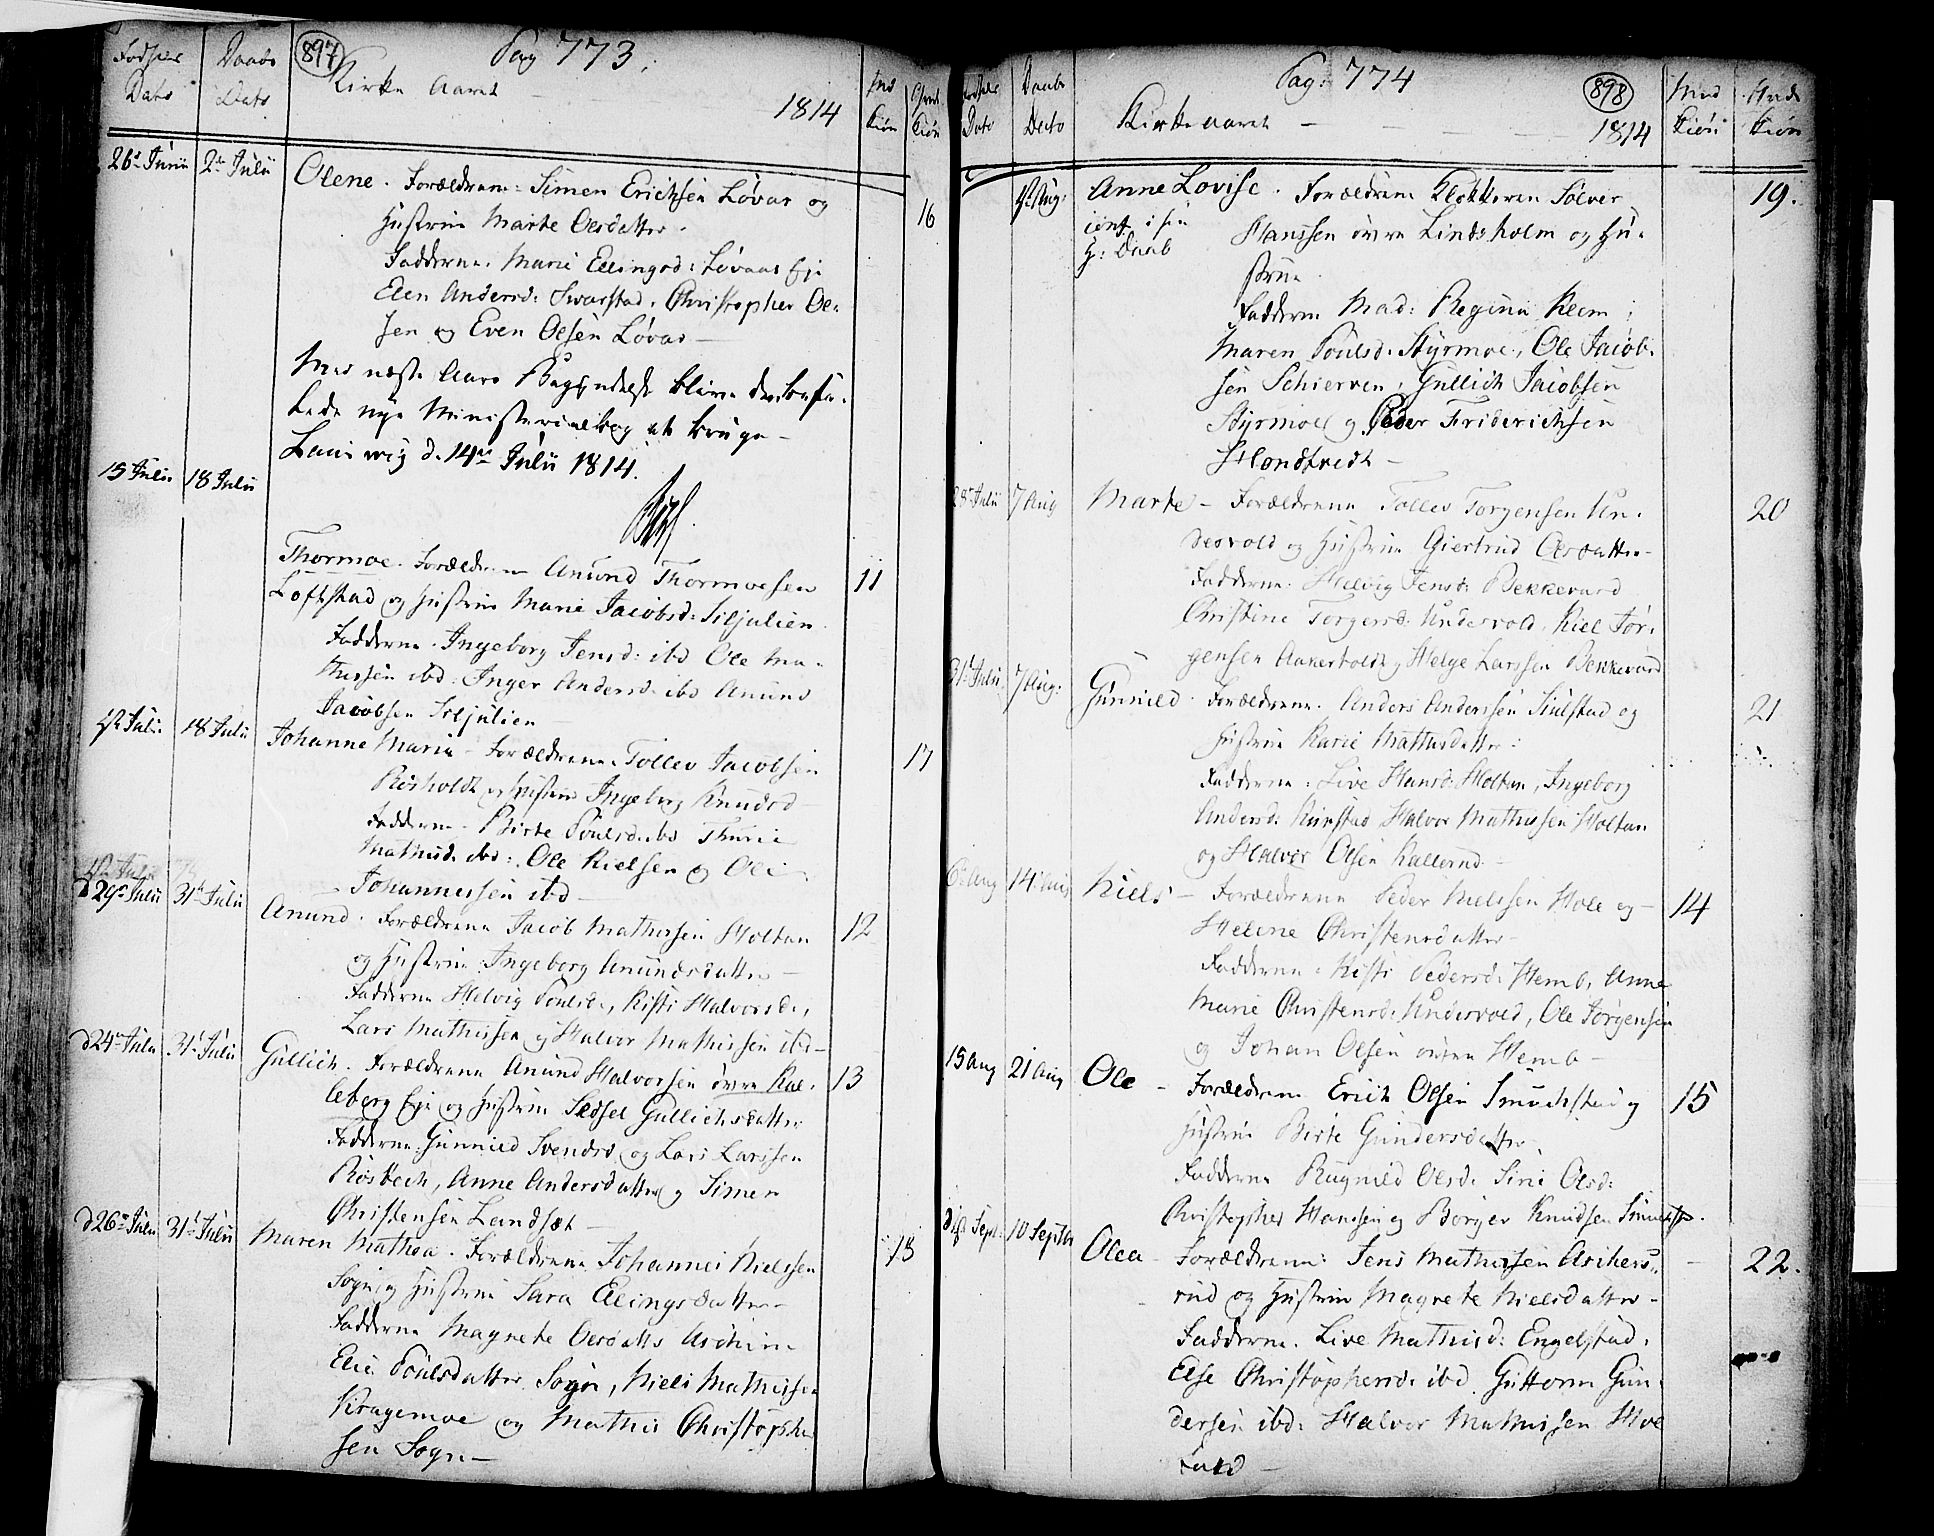 Fødsels Dato
Daabs Dato
897
Pag 773.
Kirke Aaret
1814
Md Kiøn
Qvind Kiøn
26de Junii 2de Julii
Olene. Forældrene: Simen Erichsen Løvas og 16
Hustrue Marte Olesdatter.
Fadderne. Marie Ellingsd: Løvaas Eje
Elen Andersd: Svarstad. Christopher Ol-
sen og Even Olsen Løvas
Med næste Aars Begyndelse bliver den befa-
lede nye Ministerialbog at bruge
Laurwig d. 14de Julii 1814.
15 Julii 18 Julii
Thormoe. Forældrene Anund Thormoesen 11
Loftstad og Hustrue Marie Jacobsd: Siljulien
Fadderne. Ingeborg Jensd: ibd Ole Ma-
thissen ibd: Inger Andersd: ibd Anund
Jacobsen Siljulien
Julii 18 Julii
Johanne Maria Forældrene. Tollev Jacobsen 17
Risholdt og Hustrue Ingeborg Knudsd
Fadderne. Birte Poulsd. ibd Thurie
Mathisd. ibd: Ole Nielsen og Ole
Johannessen ibd
d 29de Julii 31te Julii
Anund. Forældrene Jacob Mathissen Holtan 12
og Hustrue Ingeborg Anundsdatter
Fadderne Helvig Poulsd., Kisti Halvorsd.,
Lars Mathissen og Halvor Mathissen ibd
d 24de Julii 31te Julii
Gullich. Forældrene Anund Halvorsen øvre Kal- 13
leberg Eje og Hustrue Sidsel Gullichsdatter
Fadderne: Gunnild Svendsd og Lars Larssen
Røsbech, Anne Andersdatter og Simen
Christensen Landsæt
d 26de Julii 31te Julii
Maren Mathea. Forældrene Johannes Nielssen 18
Sogn og Hustrue Sara Ellingsdatter
Fadderne Magrete Olesdatter
Elie Poulsdatter Sogn, Niels Mathissen
Kragemoe og Mathis Christophe
sen Sogn
Fødsels Dato
Daabs Dato
Pag: 774
898
Kirke Aaret
1814
Mnd Kiøn
Qvnd Kiøn
Aug:
Anne Lovise. Forældrene Klokkeren Sølver 19.
conf. i sin
H: Daab
Hanssen øvre Lindsholm og Hu-
strue
Fadderne Mad: Regina Klem,
Maren Poulsd. Styrmoe, Ole Jacob-
sen Schierven, Gullich Jacobsen
Styrmoe og Peder Friderichsen
28de Julii 7 Aug
Marte Forældrene Tollev Torgensen Un- 20
desvold og Hustrue Giertrud Olesdatter
Fadderne: Helvig Jensd: Bekkevard
Christine Torgersd: Undesvold, Kiel Jør-
gensen Aakerholdt og Helge Larssen Bekkevard
31te Julii 7 Aug:
Gunnild Forældrene. Anders Anderssen Siulstad og 21
Hustrue Karie Mathisdatter
Fadderne. Live Hansd: Holtan, Ingeborg
Andersd: Halvor Mathissen Holtan
og Halvor Olsen Kallerud
6te Aug 14 Aug
Niels Forældrene Peder Nielssen Hole og 14
Helene Christensdatter
Fadderne. Kisti Pedersd: Hemb, Anne
Marie Christensd: Undesvold, Ole Jørgensen
og Johan Olsen Hemb
15 Aug 21 Aug
Ole Forældrene Erich Olsen og 15
Hustrue Birte Gundersdatter
Fadderne Rugnild Olesd. Siri Olesd:
Christopher Hanssen og Børger Knudsen
Sept: 10 Septbr
Olea Forældrene: Jens Mathissen Askiers- 22.
rud og Hustrue Magrete Nielsdatter
Fadderne. Live Mathisd: Engelstad,
Else Christophersd. ibd. Guttorm Gun-
dersen ibd: Halvor Mathissen Hoe
land